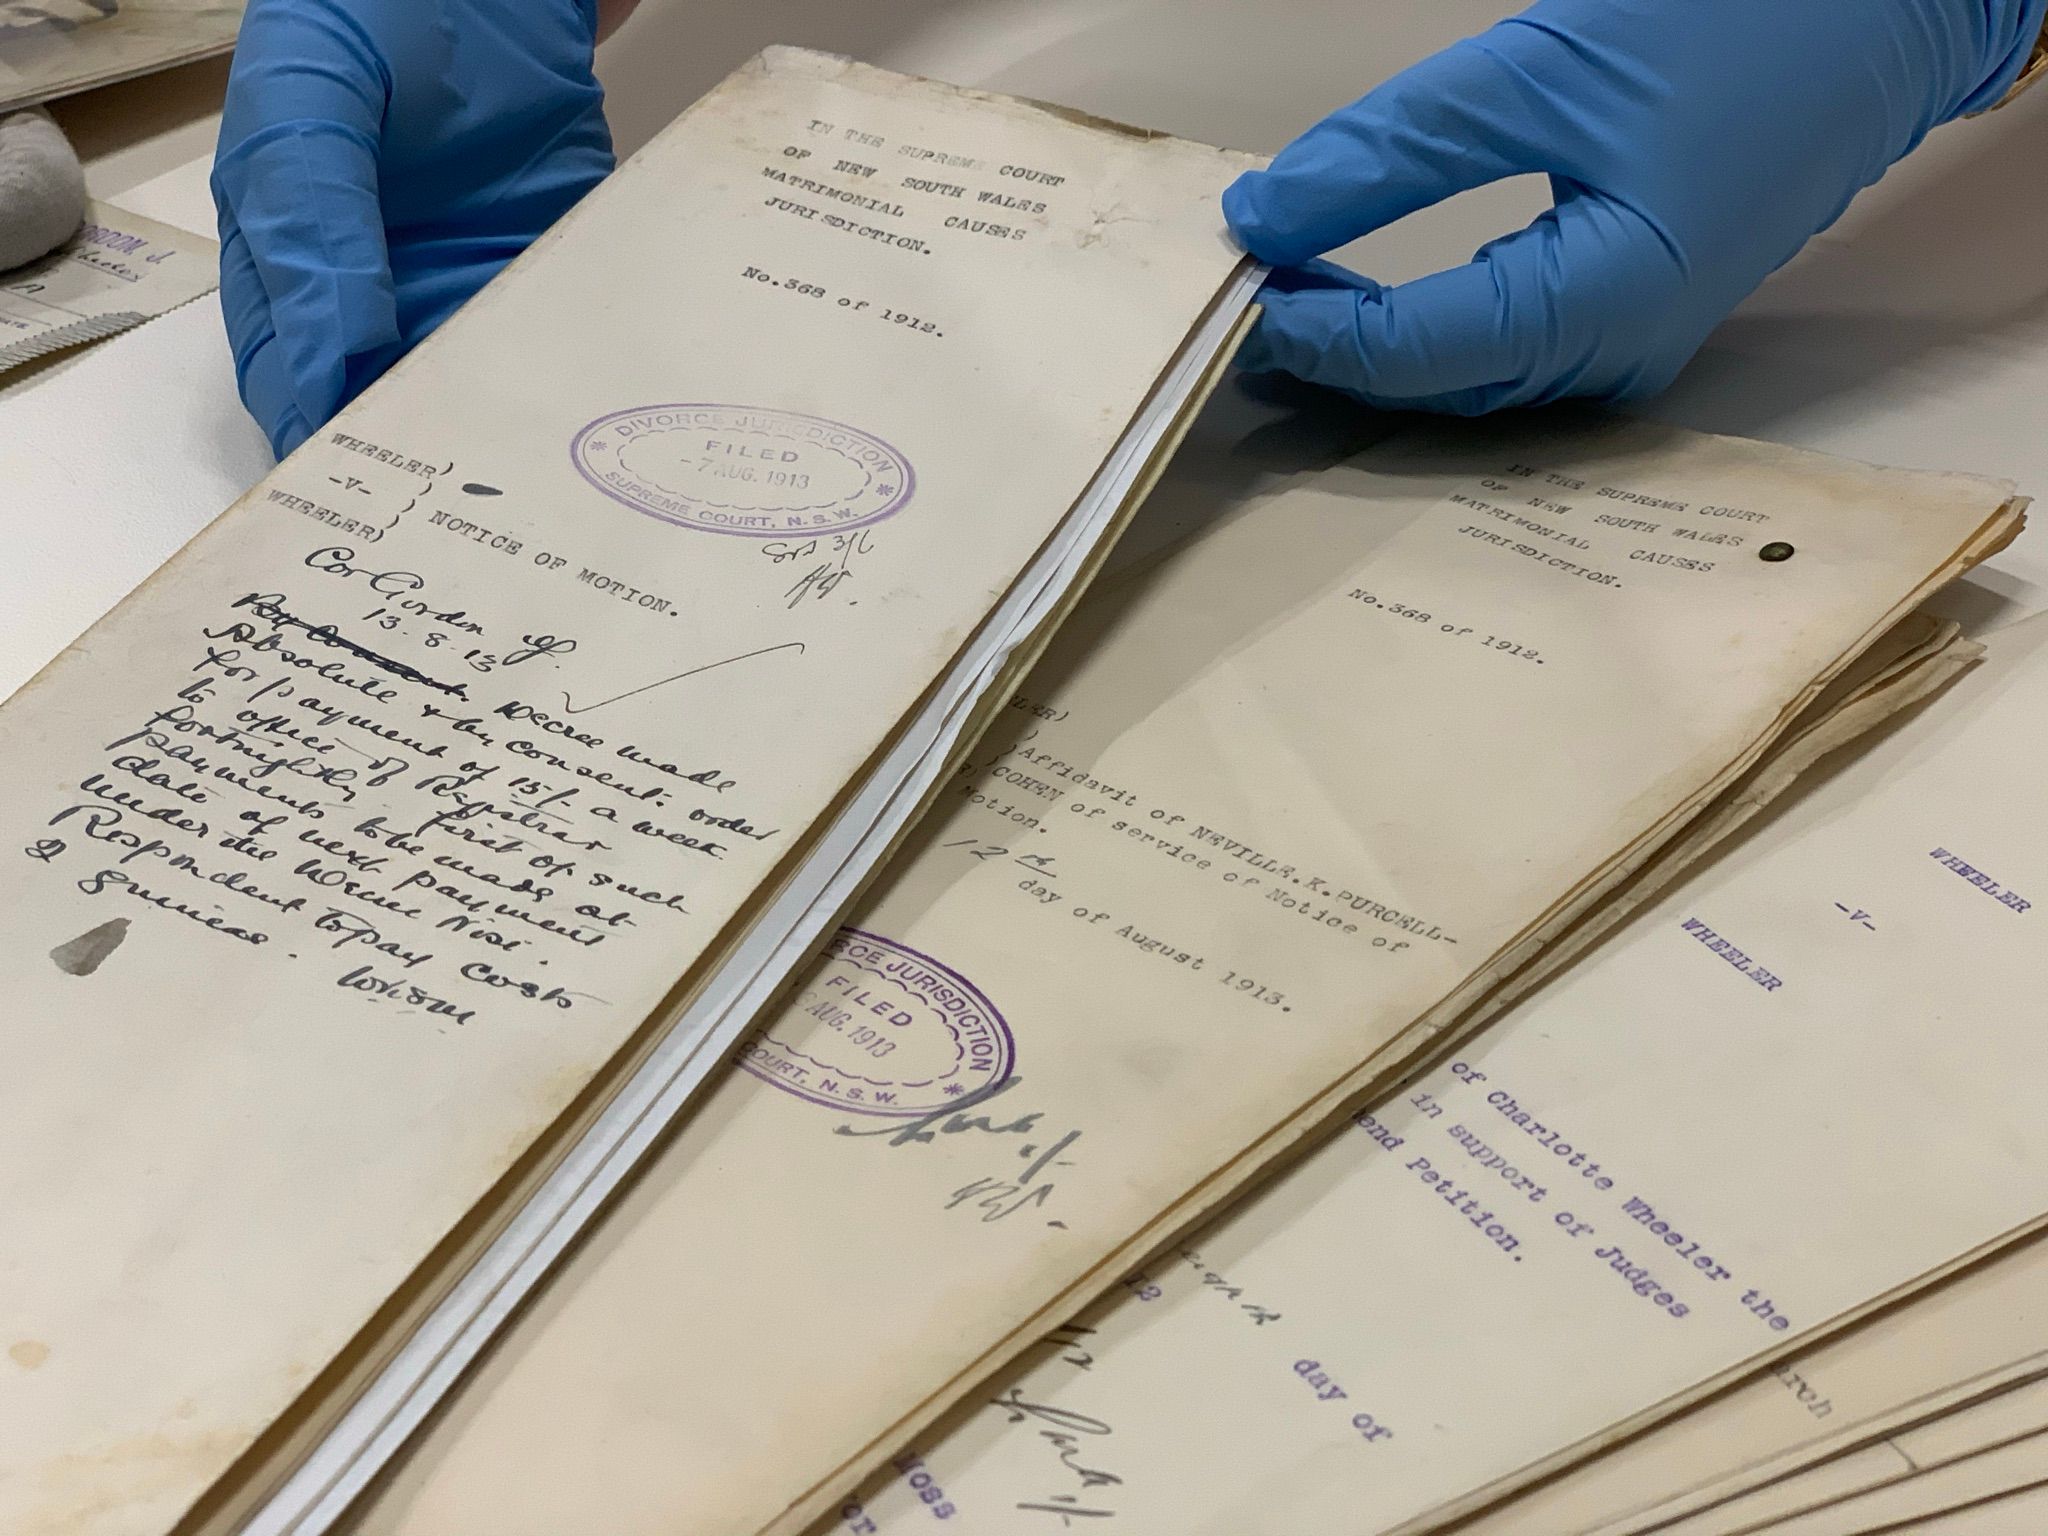 IN THE SUPREME COURT
OF NEW SOUTH WALES
MATRIMONIAL CAUSES
JURISDICTION.
No.368 of 1912.
DIVORCE JURISDICTION
FILED
-7 AUG. 1913
SUPREME COURT, N.S.W.
WHEELER)
-V- )
WHEELER)
NOTICE OF MOTION.
3/6
Cor Gordon J.
13.8.13
Decree made
Absolute & by consent: order
for payment of 15/- a week
to office of Registrar
fortnightly first of such
payments to be made at
date of next payment
under the Decree Nisi.
Respondent to pay costs
2 guineas.
IN THE SUPREME COURT
OF NEW SOUTH WALES
MATRIMONIAL CAUSES
JURISDICTION.
No.368 of 1912.
LER)
)
R)
Affidavit of NEVILLE.K.PURCELL-
COHEN of service of Notice of
Motion.
12th
day of August 1913.
CE JURISDICTION
FILED
AUG. 1913
COURT, N.S.W.
WHEELER
-V-
WHEELER
of Charlotte Wheeler the
in support of Judges
end Petition.
12
day of
arch
Moss
or
RDON, J.